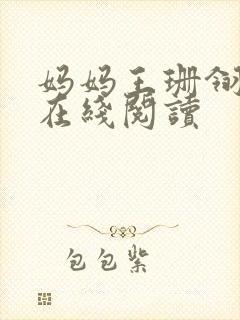 妈妈王珊
在綫閱讀
包包紫